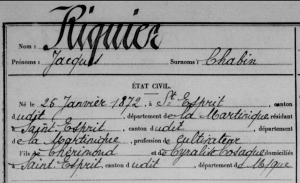 Nom : Riquier
Prénoms : Jacques Surnoms : Chabin
ÉTAT CIVIL.
Né le 25 Janvier 1872, à St Esprit, canton
d udit, département de la Martinique, résidant
à Saint-Esprit, canton d udit, département
de la Martinique, profession de Cultivateur
Fils de Chérimond et de Cyralise Cosaque domiciliés
à Saint-Esprit, canton d udit, département de Mque